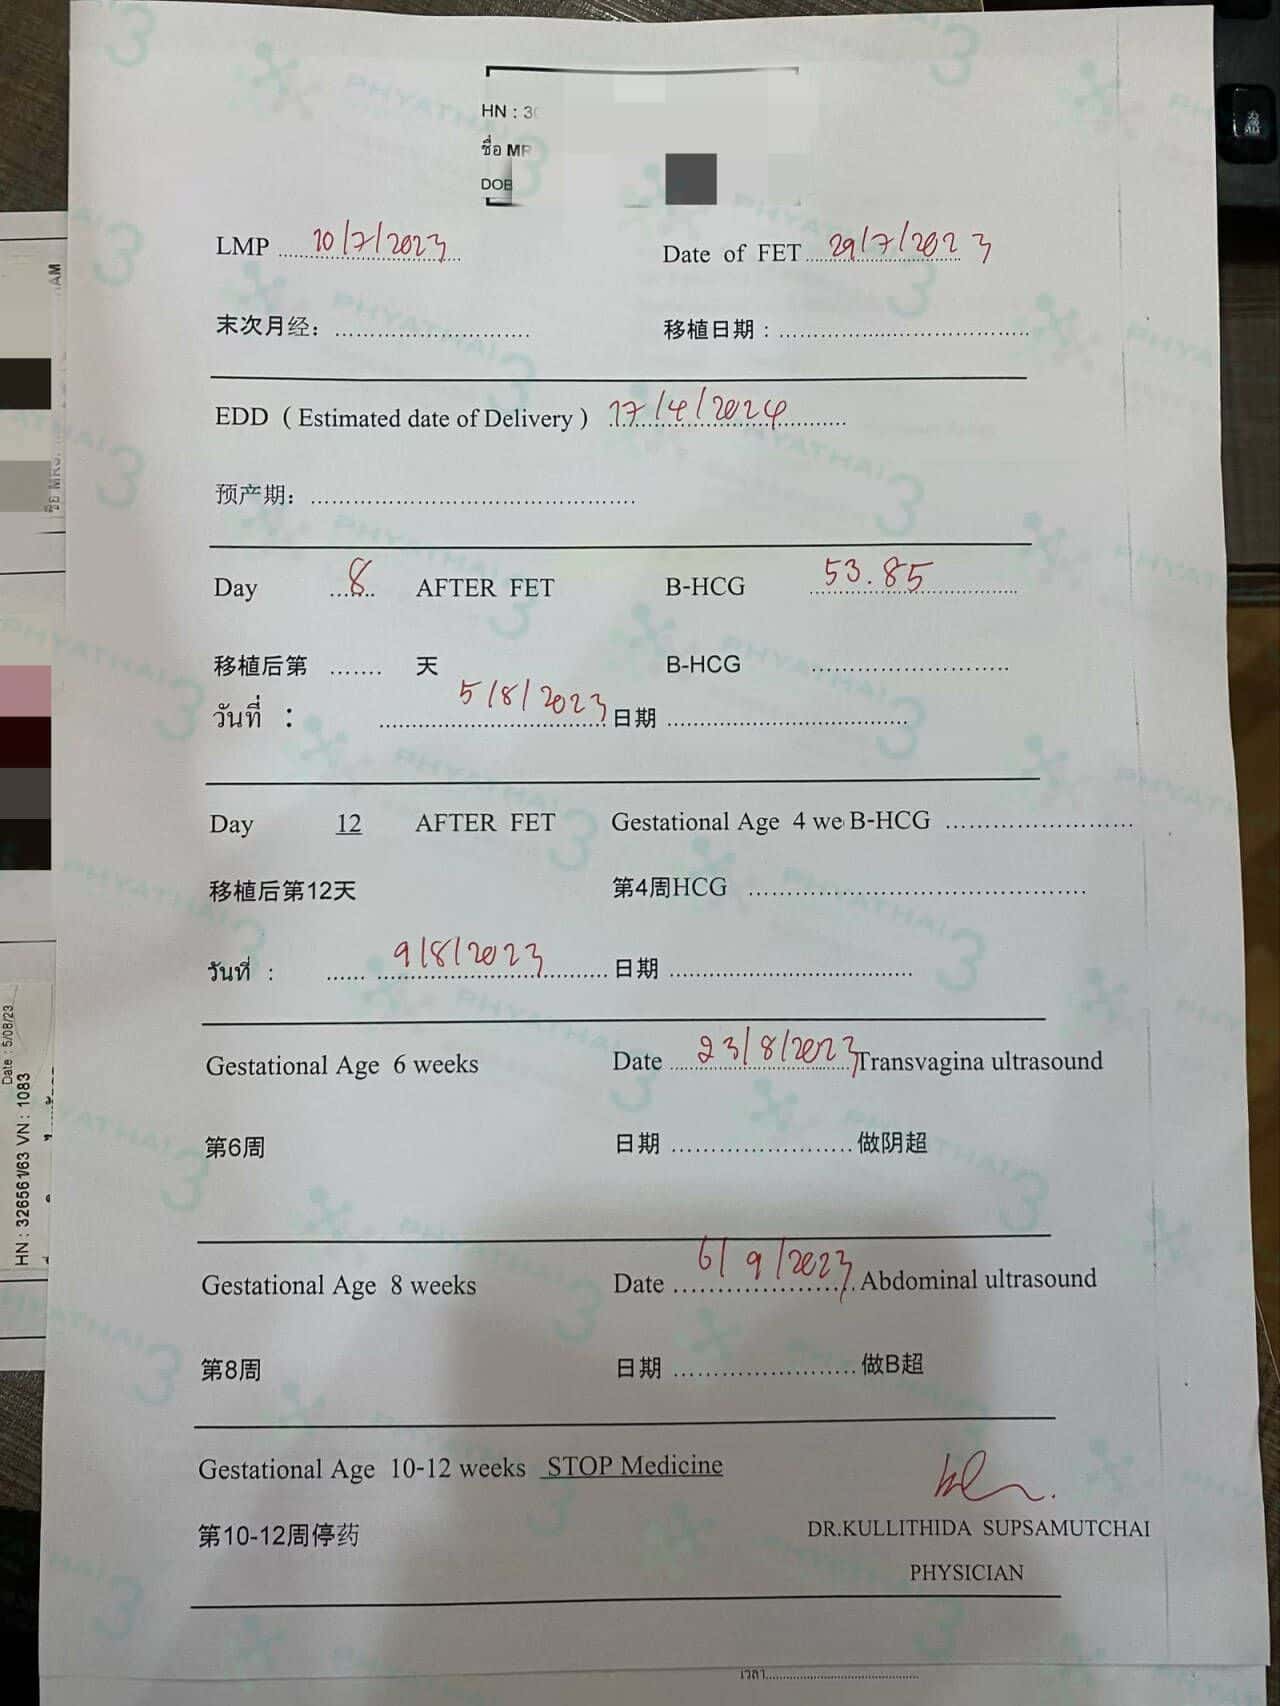 HN : 3
ชื่อ MR
DOB
LMP 10/7/2023 Date of FET 29/7/2023
末次月经：.............................. 移植日期：........................................
EDD ( Estimated date of Delivery ) 17/4/2024
预产期：..............................................
Day 8 AFTER FET B-HCG 53.85
移植后第 ....... 天 B-HCG ............................
วันที่ : 5/8/2023 日期 ..................................
Day 12 AFTER FET Gestational Age 4 we B-HCG ..........................
移植后第12天 第4周HCG ................................................
วันที่ : 9/8/2023 日期 ..................................
Gestational Age 6 weeks Date 23/8/2023 Transvagina ultrasound
第6周 日期 ........................做阴超
Gestational Age 8 weeks Date 6/9/2023 Abdominal ultrasound
第8周 日期 ........................做B超
Gestational Age 10-12 weeks STOP Medicine
第10-12周停药
DR.KULLITHIDA SUPSAMUTCHAI
PHYSICIAN
เวลา..............................................
Date : 5/08/23
HN : 326561/63 VN : 1083
ชื่อ MRS.
PHYATHAI 3